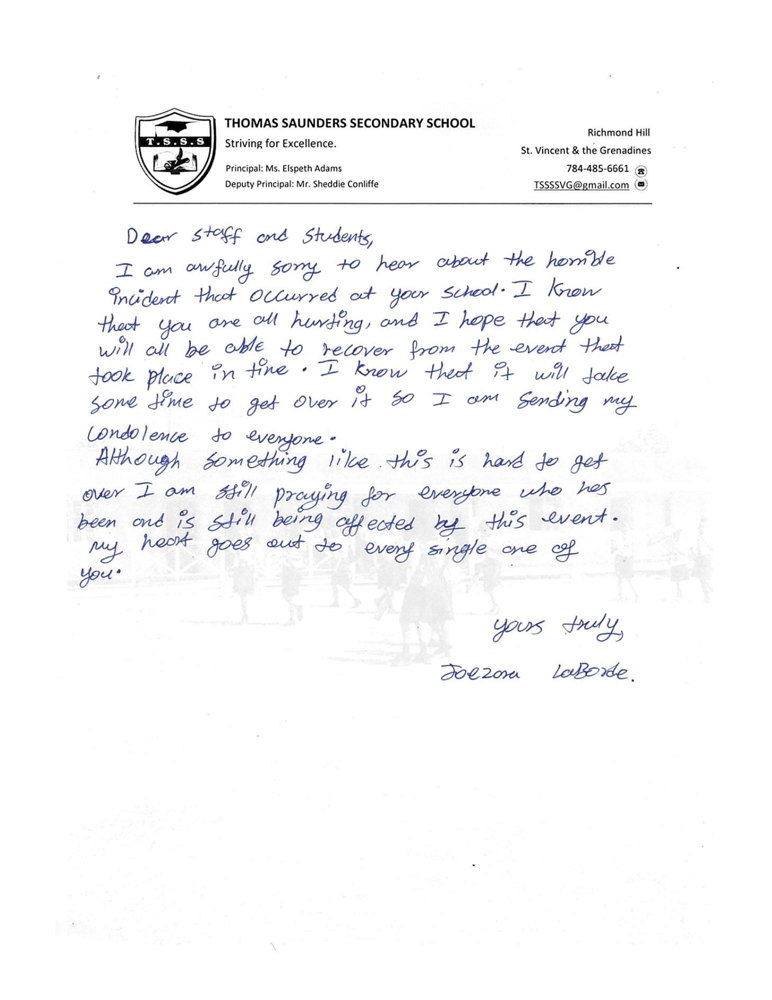 THOMAS SAUNDERS SECONDARY SCHOOL
Striving for Excellence.
Principal: Ms. Elspeth Adams
Deputy Principal: Mr. Sheddie Conliffe
Richmond Hill
St. Vincent & the Grenadines
784-485-6661
TSSSSVG@gmail.com
T.S.S.S
Dear staff and students,
I am awfully sorry to hear about the horrible
incident that occurred at your school. I know
that you are all hurting, and I hope that you
will all be able to recover from the event that
took place in time. I know that it will take
some time to get over it so I am sending my
condolence to everyone.
Although something like this is hard to get
over I am still praying for everyone who has
been and is still being affected by this event.
my heart goes out to every single one of
you.
yours truly,
Joezora LaBorde.